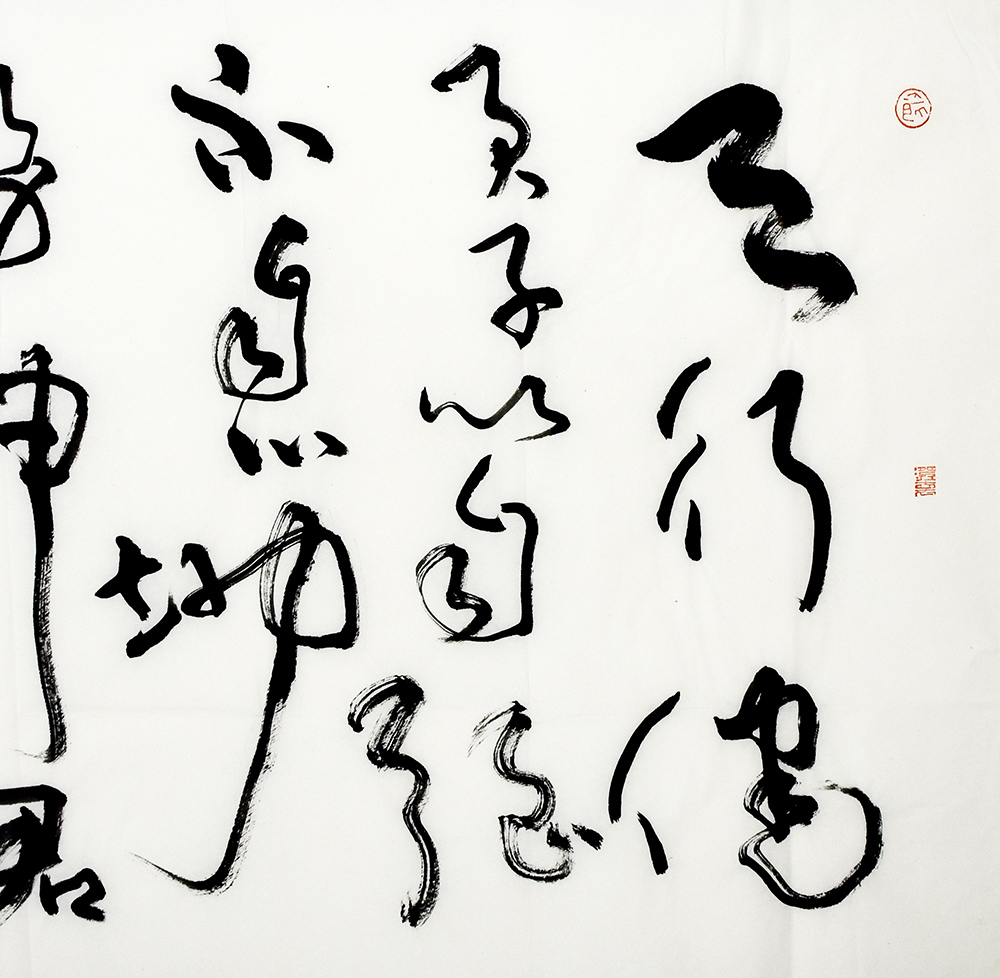 天行健
君子以自强
不息地
势坤君